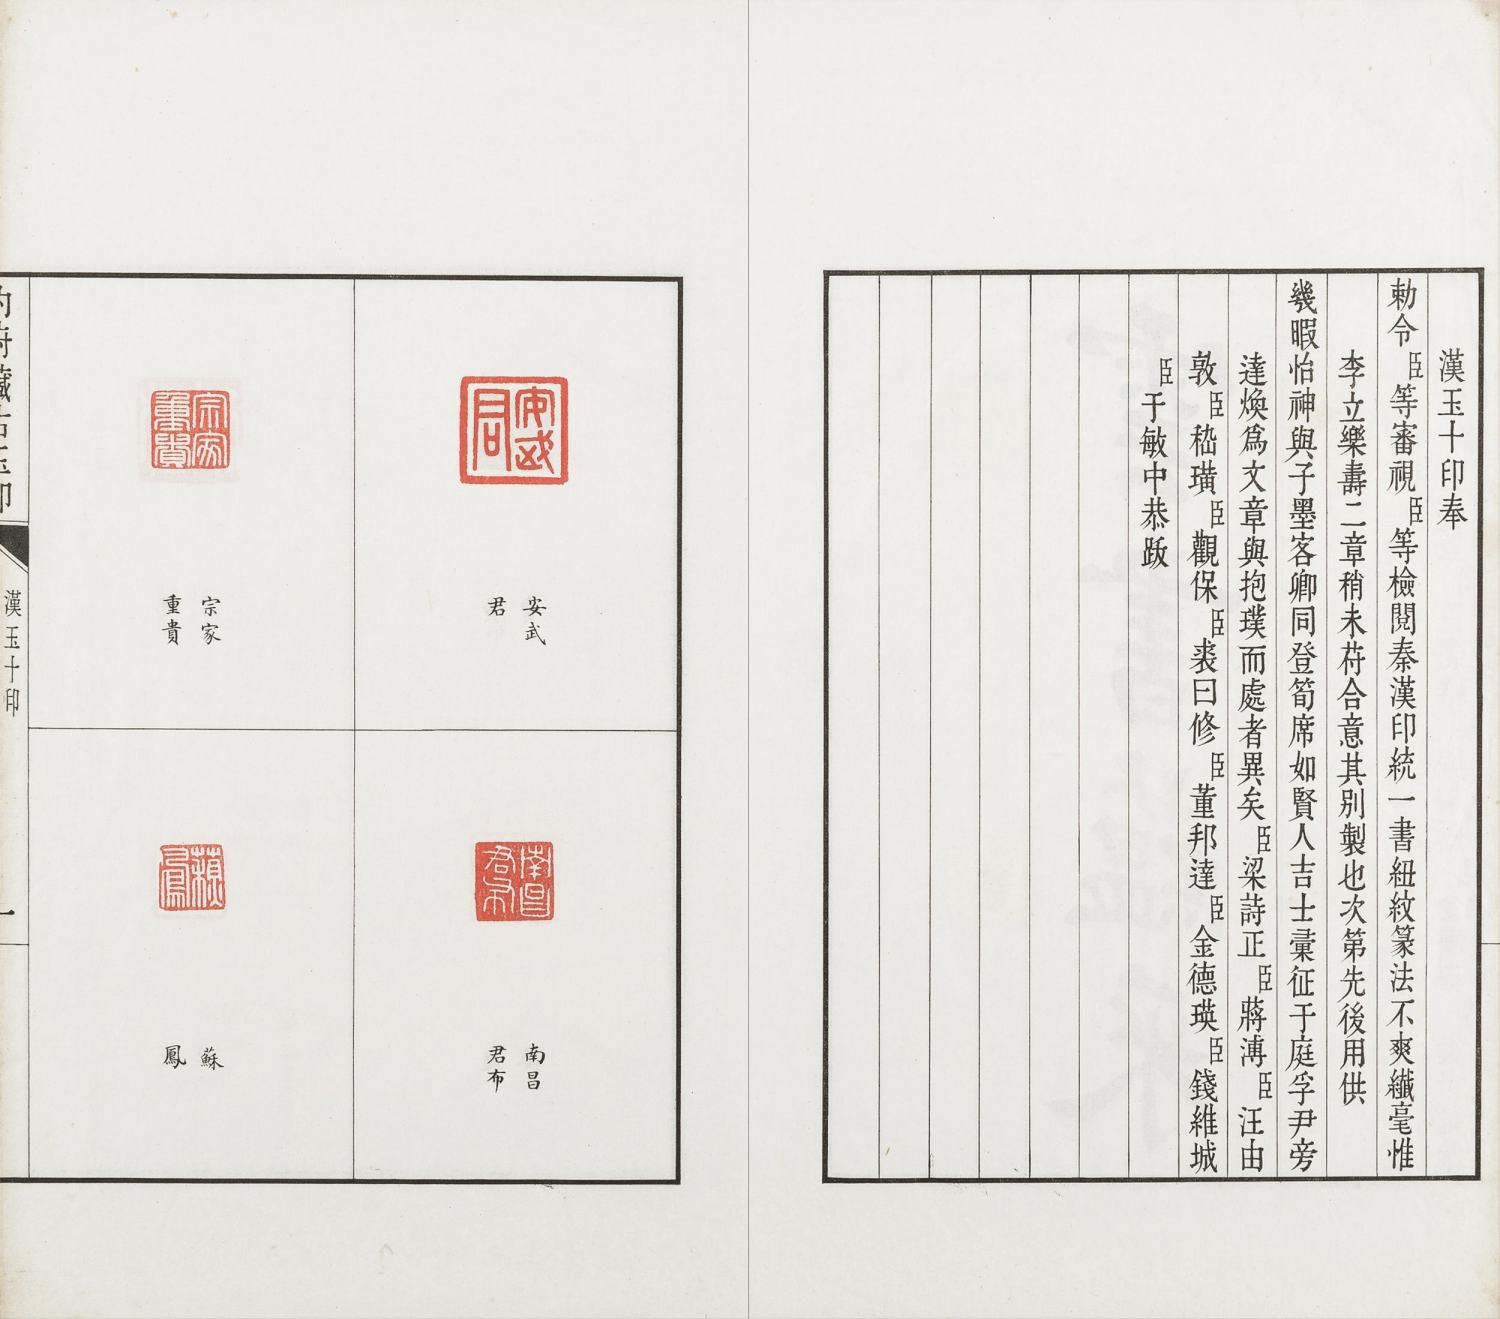 漢玉十印奉
勅令臣等審視臣等檢閱秦漢印統一書紐紋篆法不爽纖毫惟
李立樂壽二章稍未苻合意其別製也次第先後用供
幾暇怡神與子墨客卿同登筍席如賢人吉士彙征于庭孚尹旁
達煥為文章與抱璞而處者異矣臣梁詩正臣蔣溥臣汪由
敦臣嵇璜臣觀保臣裘曰修臣董邦達臣金德瑛臣錢維城
臣于敏中恭跋
安武
君
安武
君
宗家
重貴
宗家
重貴
南昌
君布
南昌
君布
蘇
鳳
蘇
鳳
內府藏古玉印
漢玉十印
一